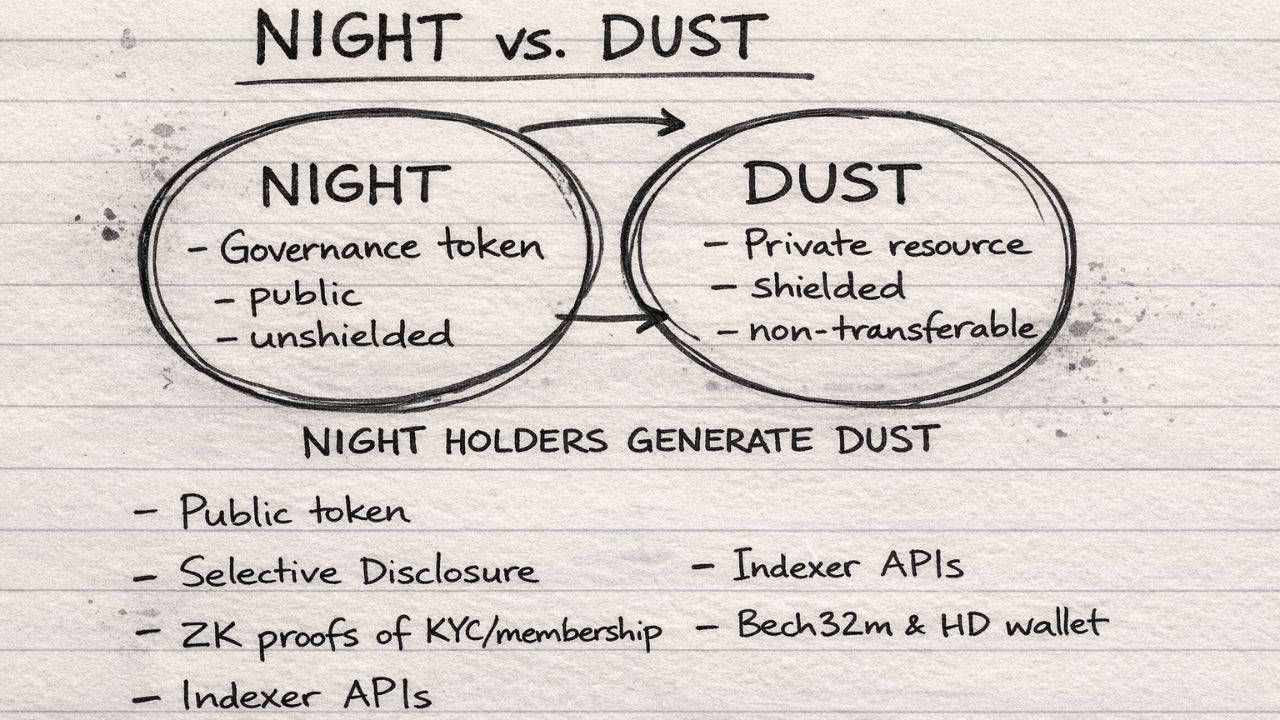 NIGHT vs. DUST
NIGHT
- Governance token
- public
- unshielded
DUST
- Private resource
- shielded
- non-transferable
NIGHT HOLDERS GENERATE DUST
- Public token
- Selective Disclosure
- ZK proofs of KYC/membership
- Indexer APIs
- Indexer APIs
- Bech32m & HD wallet